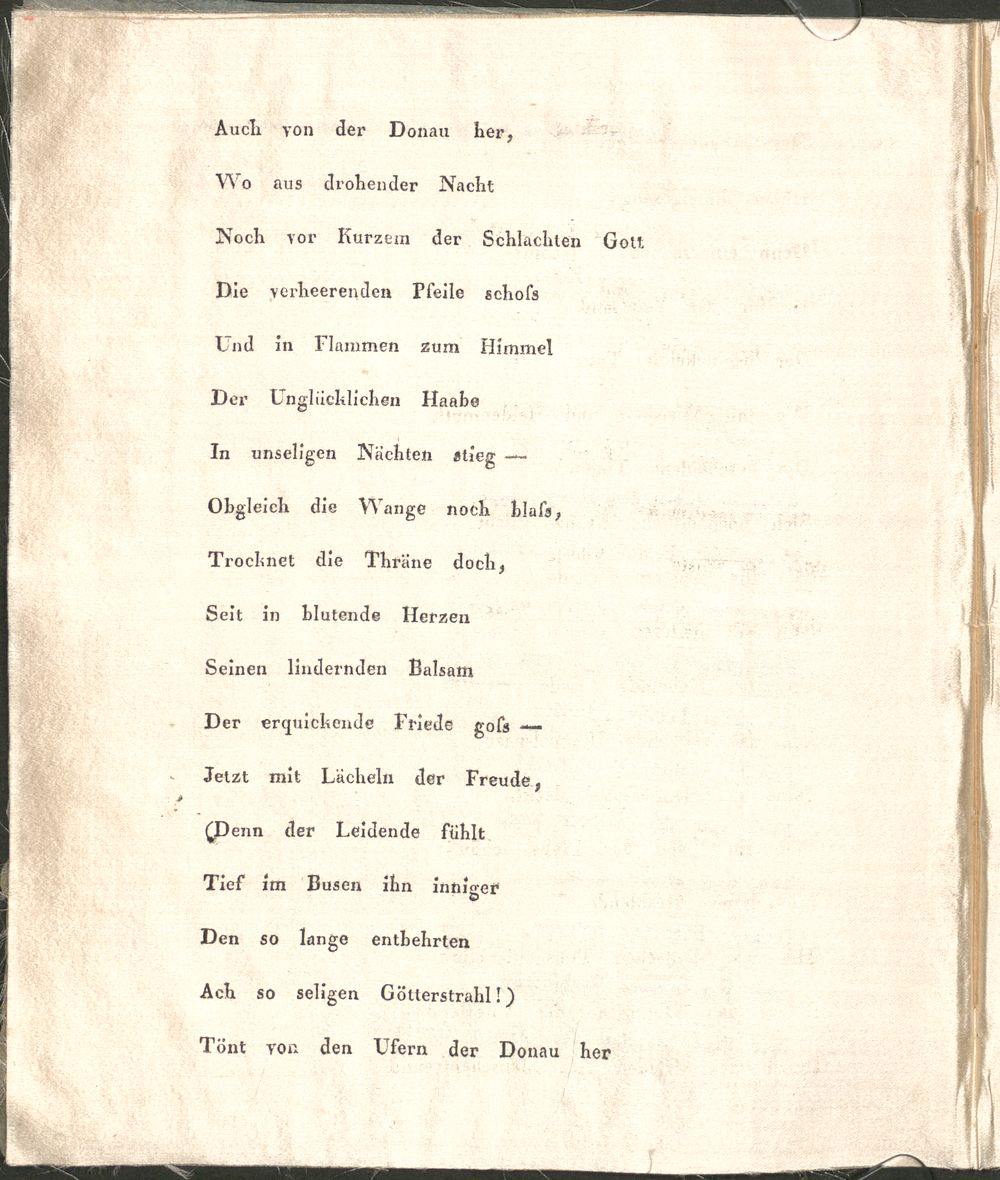 Auch von der Donau her,
Wo aus drohender Nacht
Noch vor Kurzem der Schlachten Gott
Die verheerenden Pfeile schoſs
Und in Flammen zum Himmel
Der Unglücklichen Haabe
In unseligen Nächten stieg —
Obgleich die Wange noch blaſs,
Trocknet die Thräne doch,
Seit in blutende Herzen
Seinen lindernden Balsam
Der erquickende Friede goſs —
Jetzt mit Lächeln der Freude,
(Denn der Leidende fühlt
Tief im Busen ihn inniger
Den so lange entbehrten
Ach so seligen Götterstrahl!)
Tönt von den Ufern der Donau her